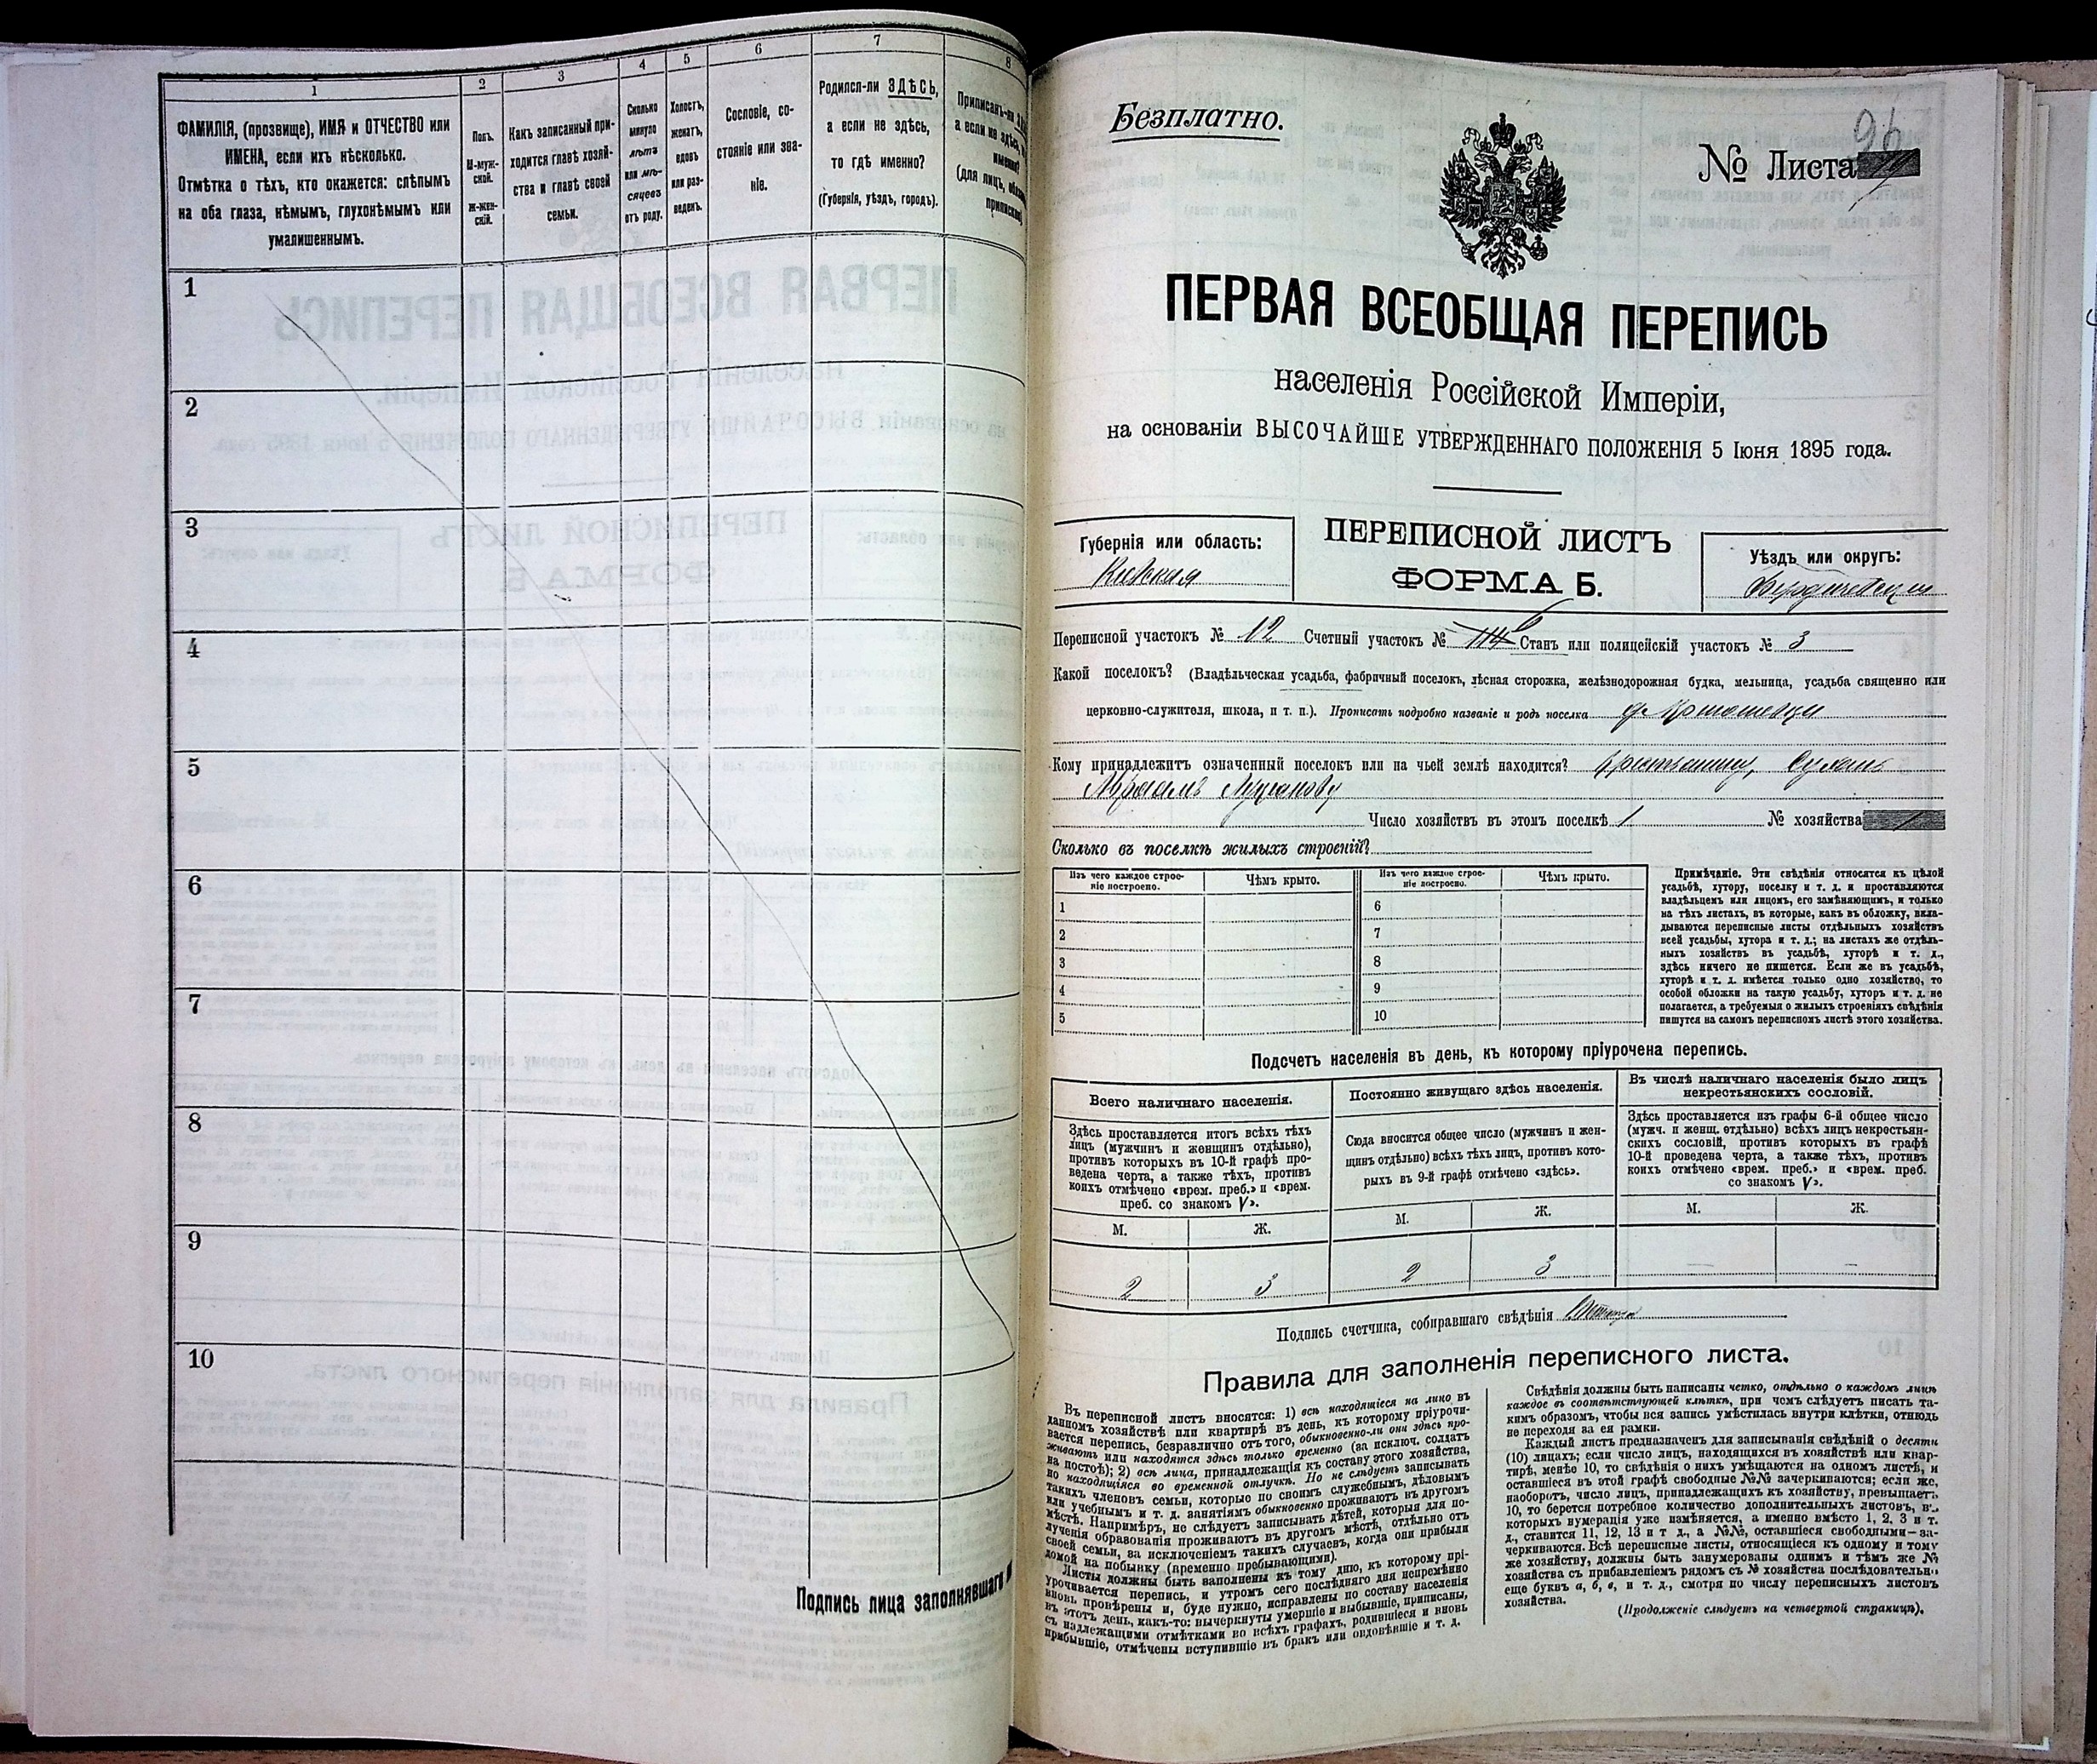 1
2
3
4
5
6
7
8
ФАМИЛІЯ, (прозвище), ИМЯ и ОТЧЕСТВО или
ИМЕНА, если ихъ нѣсколько.
Отмѣтка о тѣхъ, кто окажется: слѣпымъ
на оба глаза, нѣмымъ, глухонѣмымъ или
умалишеннымъ.
Полъ.
М-муж-
ской.
Ж-жен-
скій.
Какъ записанный при-
ходится главѣ хозяй-
ства и главѣ своей
семьи.
Сколько
минуло
лѣтъ
или мѣ-
сяцевъ
отъ роду.
Холостъ,
женатъ,
вдовъ
или раз-
веденъ.
Сословіе, со-
стояніе или зва-
ніе.
Родился-ли ЗДѢСЬ,
а если не здѣсь,
то гдѣ именно?
(Губернія, уѣздъ, городъ).
Приписанъ-ли
а если не здѣсь,
(для лицъ,
1
2
3
4
5
6
7
8
9
10
Подпись лица заполнявшаго
Безплатно.
96
№ Листа
ПЕРВАЯ ВСЕОБЩАЯ ПЕРЕПИСЬ
населенія Россійской Имперіи,
на основаніи ВЫСОЧАЙШЕ УТВЕРЖДЕННАГО ПОЛОЖЕНІЯ 5 Іюня 1895 года.
Губернія или область:
Кіевская
ПЕРЕПИСНОЙ ЛИСТЪ
ФОРМА Б.
Уѣздъ или округъ:
Переписной участокъ № 12 Счетный участокъ № Станъ или полицейскій участокъ № 3
Какой поселокъ? (Владѣльческая усадьба, фабричный поселокъ, лѣсная сторожка, желѣзнодорожная будка, мельница, усадьба священно или
церковно-служителя, школа, и т. п.). Прописать подробно названіе и родъ поселка
Кому принадлежитъ означенный поселокъ или на чьей землѣ находится?
Число хозяйствъ въ этомъ поселкѣ 1 № хозяйства
Сколько въ поселкѣ жилыхъ строеній?
Изъ чего каждое строе-
ніе построено.
Чѣмъ крыто.
Изъ чего каждое строе-
ніе построено.
Чѣмъ крыто.
1
2
3
4
5
6
7
8
9
10
Примѣчаніе. Эти свѣдѣнія относятся къ цѣлой
усадьбѣ, хутору, поселку и т. д. и проставляются
владѣльцемъ или лицомъ, его замѣняющимъ, и только
на тѣхъ листахъ, въ которые, какъ въ обложку, вкла-
дываются переписные листы отдѣльныхъ хозяйствъ
всей усадьбы, хутора и т. д.; на листахъ же отдѣль-
ныхъ хозяйствъ въ усадьбѣ, хуторѣ и т. д.,
здѣсь ничего не пишется. Если же въ усадьбѣ,
хуторѣ и т. д. имѣется только одно хозяйство, то
особой обложки на такую усадьбу, хуторъ и т. д. не
полагается, а требуемыя о жилыхъ строеніяхъ свѣдѣнія
пишутся на самомъ переписномъ листѣ этого хозяйства.
Подсчетъ населенія въ день, къ которому пріурочена перепись.
Всего наличнаго населенія.
Здѣсь проставляется итогъ всѣхъ тѣхъ
лицъ (мужчинъ и женщинъ отдѣльно),
противъ которыхъ въ 10-й графѣ про-
ведена черта, а также тѣхъ, противъ
коихъ отмѣчено «врем. преб.» и «врем.
преб. со знакомъ V».
М.
Ж.
2
3
Постоянно живущаго здѣсь населенія.
Сюда вносится общее число (мужчинъ и жен-
щинъ отдѣльно) всѣхъ тѣхъ лицъ, противъ кото-
рыхъ въ 9-й графѣ отмѣчено «здѣсь».
М.
Ж.
2
3
Въ числѣ наличнаго населенія было лицъ
некрестьянскихъ сословій.
Здѣсь проставляется изъ графы 6-й общее число
(мужч. и женщ. отдѣльно) всѣхъ лицъ некрестьян-
скихъ сословій, противъ которыхъ въ графѣ
10-й проведена черта, а также тѣхъ, противъ
коихъ отмѣчено «врем. преб.» и «врем. преб.
со знакомъ V».
М.
Ж.
—
—
Подпись счетчика, собиравшаго свѣдѣнія
Правила для заполненія переписного листа.
Въ переписной листъ вносятся: 1) всѣ находящіеся на лицо въ
данномъ хозяйствѣ или квартирѣ въ день, къ которому пріурочи-
вается перепись, безразлично отъ того, обыкновенно-ли они здѣсь про-
живаютъ или находятся здѣсь только временно (за исключ. солдатъ
на постоѣ); 2) всѣ лица, принадлежащія къ составу этого хозяйства,
но находящіяся во временной отлучкѣ. Но не слѣдуетъ записывать
такихъ членовъ семьи, которые по своимъ служебнымъ, дѣловымъ
или учебнымъ и т. д. занятіямъ обыкновенно проживаютъ въ другомъ
мѣстѣ. Напримѣръ, не слѣдуетъ записывать дѣтей, которыя для по-
лученія образованія проживаютъ въ другомъ мѣстѣ, отдѣльно отъ
своей семьи, за исключеніемъ такихъ случаевъ, когда они прибыли
домой на побывку (временно пребывающими).
Листы должны быть заполнены къ тому дню, къ которому прі-
урочивается перепись, и утромъ сего послѣдняго дня непремѣнно
вновь провѣрены и, буде нужно, исправлены по составу населенія
въ этотъ день, какъ-то: вычеркнуты умершіе и выбывшіе, приписаны,
съ надлежащими отмѣтками во всѣхъ графахъ, родившіеся и вновь
прибывшіе, отмѣчены вступившіе въ бракъ или овдовѣвшіе и т. д.
Свѣдѣнія должны быть написаны четко, отдѣльно о каждомъ лицѣ
каждое въ соотвѣтствующей клѣткѣ, при чемъ слѣдуетъ писать та-
кимъ образомъ, чтобы вся запись умѣстилась внутри клѣтки, отнюдь
не переходя за ея рамки.
Каждый листъ предназначенъ для записыванія свѣдѣній о десяти
(10) лицахъ; если число лицъ, находящихся въ хозяйствѣ или квар-
тирѣ, менѣе 10, то свѣдѣнія о нихъ умѣщаются на одномъ листѣ, и
оставшіеся въ этой графѣ свободные №№ зачеркиваются; если же,
наоборотъ, число лицъ, принадлежащихъ къ хозяйству, превышаетъ
10, то берется потребное количество дополнительныхъ листовъ, въ
которыхъ нумерація уже измѣняется, а именно вмѣсто 1, 2, 3 и т.
д., ставится 11, 12, 13 и т д., а №№, оставшіеся свободными—за-
черкиваются. Всѣ переписные листы, относящіеся къ одному и тому
же хозяйству, должны быть занумерованы однимъ и тѣмъ же №
хозяйства съ прибавленіемъ рядомъ съ № хозяйства послѣдовательно
еще буквъ а, б, в, и т. д., смотря по числу переписныхъ листовъ
хозяйства.
(Продолженіе слѣдуетъ на четвертой страницѣ).